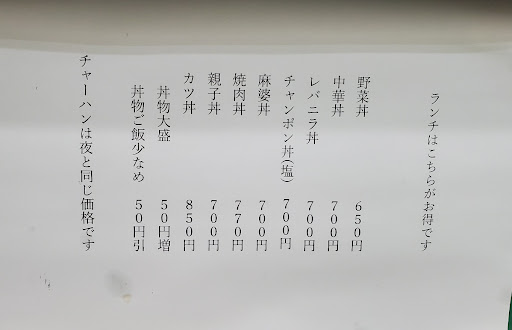 ランチはこちらがお得です
野菜丼 650円
中華丼 700円
レバニラ丼 700円
チャンポン丼(塩) 700円
麻婆丼 700円
焼肉丼 770円
親子丼 700円
カツ丼 850円
丼物大盛 50円増
丼物ご飯少なめ 50円引
チャーハンは夜と同じ価格です